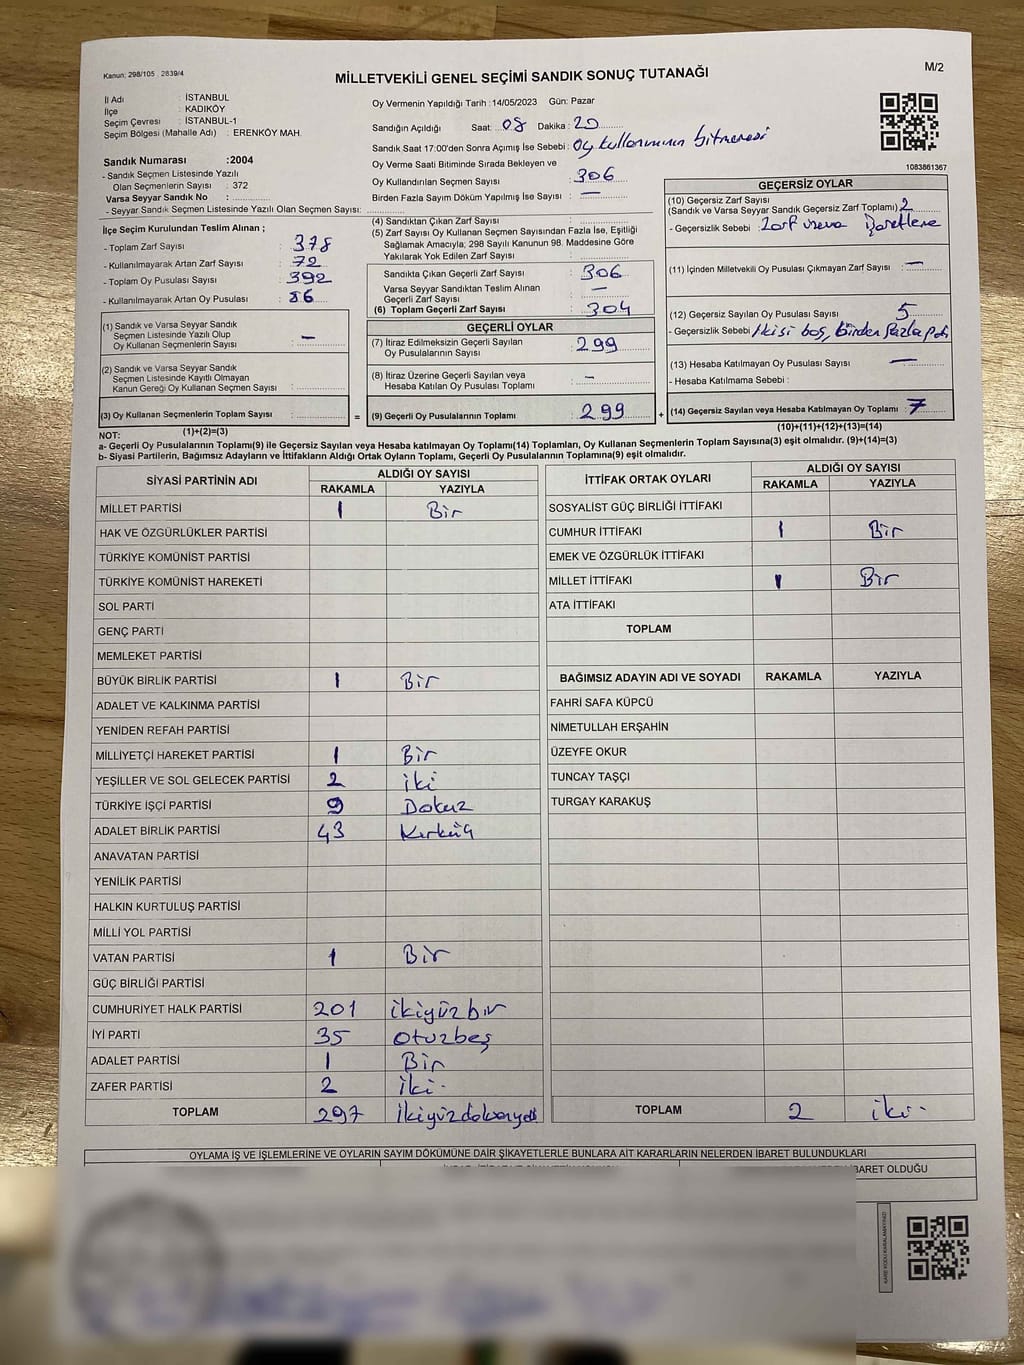 Kanun: 298/105 , 2839/4
MİLLETVEKİLİ GENEL SEÇİMİ SANDIK SONUÇ TUTANAĞI
M/2
İl Adı : İSTANBUL
İlçe : KADIKÖY
Seçim Çevresi : İSTANBUL-1
Seçim Bölgesi (Mahalle Adı) : ERENKÖY MAH.
Sandık Numarası :2004
- Sandık Seçmen Listesinde Yazılı
Olan Seçmenlerin Sayısı : 372
Varsa Seyyar Sandık No :
- Seyyar Sandık Seçmen Listesinde Yazılı Olan Seçmen Sayısı:
Oy Vermenin Yapıldığı Tarih : 14/05/2023 Gün: Pazar
Sandığın Açıldığı Saat: 08 Dakika : 20
Sandık Saat 17:00'den Sonra Açımış İse Sebebi : Oy kullanımının bitmemesi
Oy Verme Saati Bitiminde Sırada Bekleyen ve
Oy Kullandırılan Seçmen Sayısı : 306
Birden Fazla Sayım Döküm Yapılmış İse Sayısı : —
1083861367
İlçe Seçim Kurulundan Teslim Alınan ;
- Toplam Zarf Sayısı : 378
- Kullanılmayarak Artan Zarf Sayısı : 72
- Toplam Oy Pusulası Sayısı : 392
- Kullanılmayarak Artan Oy Pusulası : 86
(1) Sandık ve Varsa Seyyar Sandık
Seçmen Listesinde Yazılı Olup
Oy Kullanan Seçmenlerin Sayısı : —
(2) Sandık ve Varsa Seyyar Sandık
Seçmen Listesinde Kayıtlı Olmayan
Kanun Gereği Oy Kullanan Seçmen Sayısı :
(3) Oy Kullanan Seçmenlerin Toplam Sayısı :
(1)+(2)=(3)
(4) Sandıktan Çıkan Zarf Sayısı :
(5) Zarf Sayısı Oy Kullanan Seçmen Sayısından Fazla İse, Eşitliği
Sağlamak Amacıyla; 298 Sayılı Kanunun 98. Maddesine Göre
Yakılarak Yok Edilen Zarf Sayısı :
Sandıkta Çıkan Geçerli Zarf Sayısı : 306
Varsa Seyyar Sandıktan Teslim Alınan
Geçerli Zarf Sayısı : —
(6) Toplam Geçerli Zarf Sayısı : 304
GEÇERLİ OYLAR
(7) İtiraz Edilmeksizin Geçerli Sayılan
Oy Pusulalarının Sayısı : 299
(8) İtiraz Üzerine Geçerli Sayılan veya
Hesaba Katılan Oy Pusulası Toplamı : -
= (9) Geçerli Oy Pusulalarının Toplamı : 299 +
GEÇERSİZ OYLAR
(10) Geçersiz Zarf Sayısı
(Sandık ve Varsa Seyyar Sandık Geçersiz Zarf Toplamı) 2
- Geçersizlik Sebebi : Zarf işaretleme
(11) İçinden Milletvekili Oy Pusulası Çıkmayan Zarf Sayısı : —
(12) Geçersiz Sayılan Oy Pusulası Sayısı : 5
- Geçersizlik Sebebi İkisi boş, birden fazla
(13) Hesaba Katılmayan Oy Pusulası Sayısı : —
- Hesaba Katılmama Sebebi :
(14) Geçersiz Sayılan veya Hesaba Katılmayan Oy Toplamı : 7
(10)+(11)+(12)+(13)=(14)
NOT:
a- Geçerli Oy Pusulalarının Toplamı(9) ile Geçersiz Sayılan veya Hesaba katılmayan Oy Toplamı(14) Toplamları, Oy Kullanan Seçmenlerin Toplam Sayısına(3) eşit olmalıdır. (9)+(14)=(3)
b- Siyasi Partilerin, Bağımsız Adayların ve İttifakların Aldığı Ortak Oyların Toplamı, Geçerli Oy Pusulalarının Toplamına(9) eşit olmalıdır.
SİYASİ PARTİNİN ADI ALDIĞI OY SAYISI
RAKAMLA YAZIYLA
MİLLET PARTİSİ 1 Bir
HAK VE ÖZGÜRLÜKLER PARTİSİ
TÜRKİYE KOMÜNİST PARTİSİ
TÜRKİYE KOMÜNİST HAREKETİ
SOL PARTİ
GENÇ PARTİ
MEMLEKET PARTİSİ
BÜYÜK BİRLİK PARTİSİ 1 Bir
ADALET VE KALKINMA PARTİSİ
YENİDEN REFAH PARTİSİ
MİLLİYETÇİ HAREKET PARTİSİ 1 Bir
YEŞİLLER VE SOL GELECEK PARTİSİ 2 iki
TÜRKİYE İŞÇİ PARTİSİ 9 Dokuz
ADALET BİRLİK PARTİSİ 43 Kırküç
ANAVATAN PARTİSİ
YENİLİK PARTİSİ
HALKIN KURTULUŞ PARTİSİ
MİLLİ YOL PARTİSİ
VATAN PARTİSİ 1 Bir
GÜÇ BİRLİĞİ PARTİSİ
CUMHURİYET HALK PARTİSİ 201 ikiyüzbir
İYİ PARTİ 35 otuzbeş
ADALET PARTİSİ 1 Bir
ZAFER PARTİSİ 2 iki
TOPLAM 297 ikiyüzdoksanyedi
İTTİFAK ORTAK OYLARI ALDIĞI OY SAYISI
RAKAMLA YAZIYLA
SOSYALİST GÜÇ BİRLİĞİ İTTİFAKI
CUMHUR İTTİFAKI 1 Bir
EMEK VE ÖZGÜRLÜK İTTİFAKI
MİLLET İTTİFAKI 1 Bir
ATA İTTİFAKI
TOPLAM
BAĞIMSIZ ADAYIN ADI VE SOYADI RAKAMLA YAZIYLA
FAHRİ SAFA KÜPCÜ
NİMETULLAH ERŞAHİN
ÜZEYFE OKUR
TUNCAY TAŞÇI
TURGAY KARAKUŞ
TOPLAM 2 iki
OYLAMA İŞ VE İŞLEMLERİNE VE OYLARIN SAYIM DÖKÜMÜNE DAİR ŞİKAYETLERLE BUNLARA AİT KARARLARIN NELERDEN İBARET BULUNDUKLARI
İBARET OLDUĞU